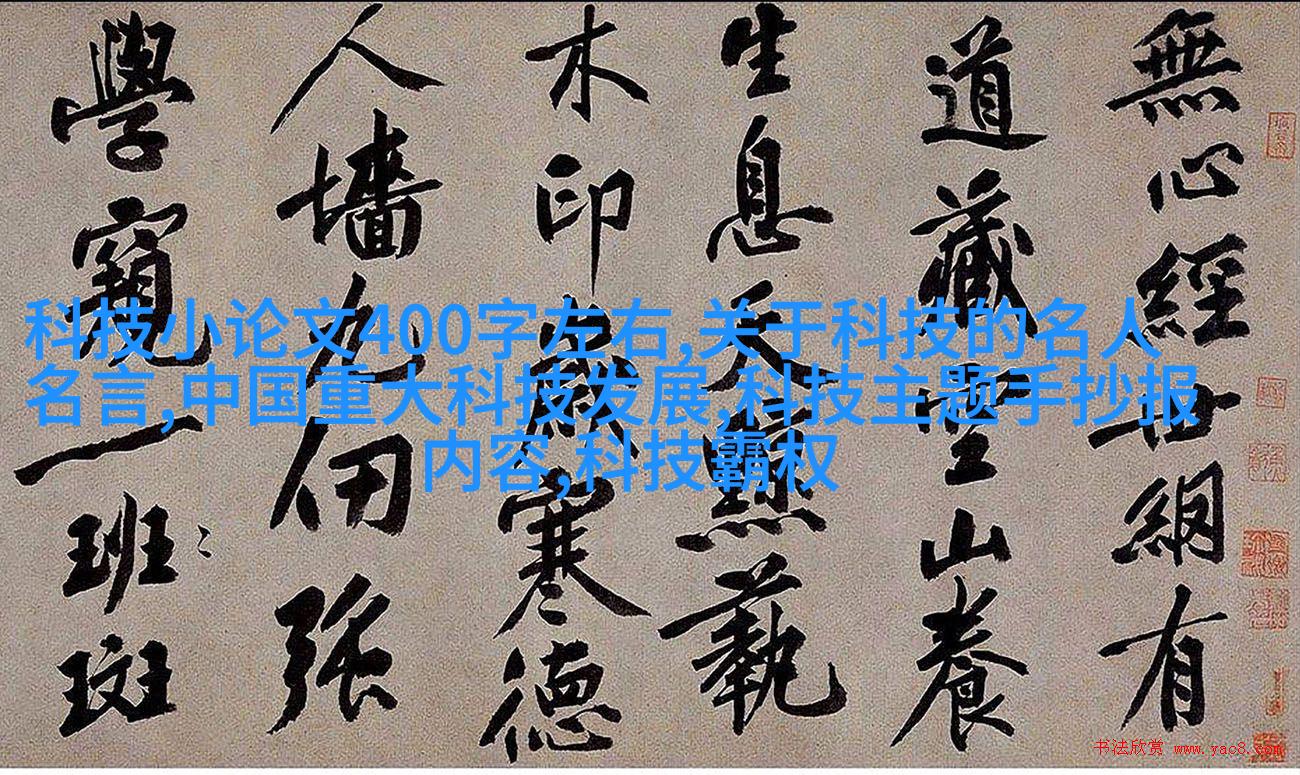 無心經世網有
道藏丘山養
生息天黥藝
木印歲寒德
人墻九仞強
學窺一班斑
科技小论文400字左右,关于科技的名人
名言,中国重大科技发展,科技主题手抄报
内容,科技霸权
书法欣赏 www.yac8.com